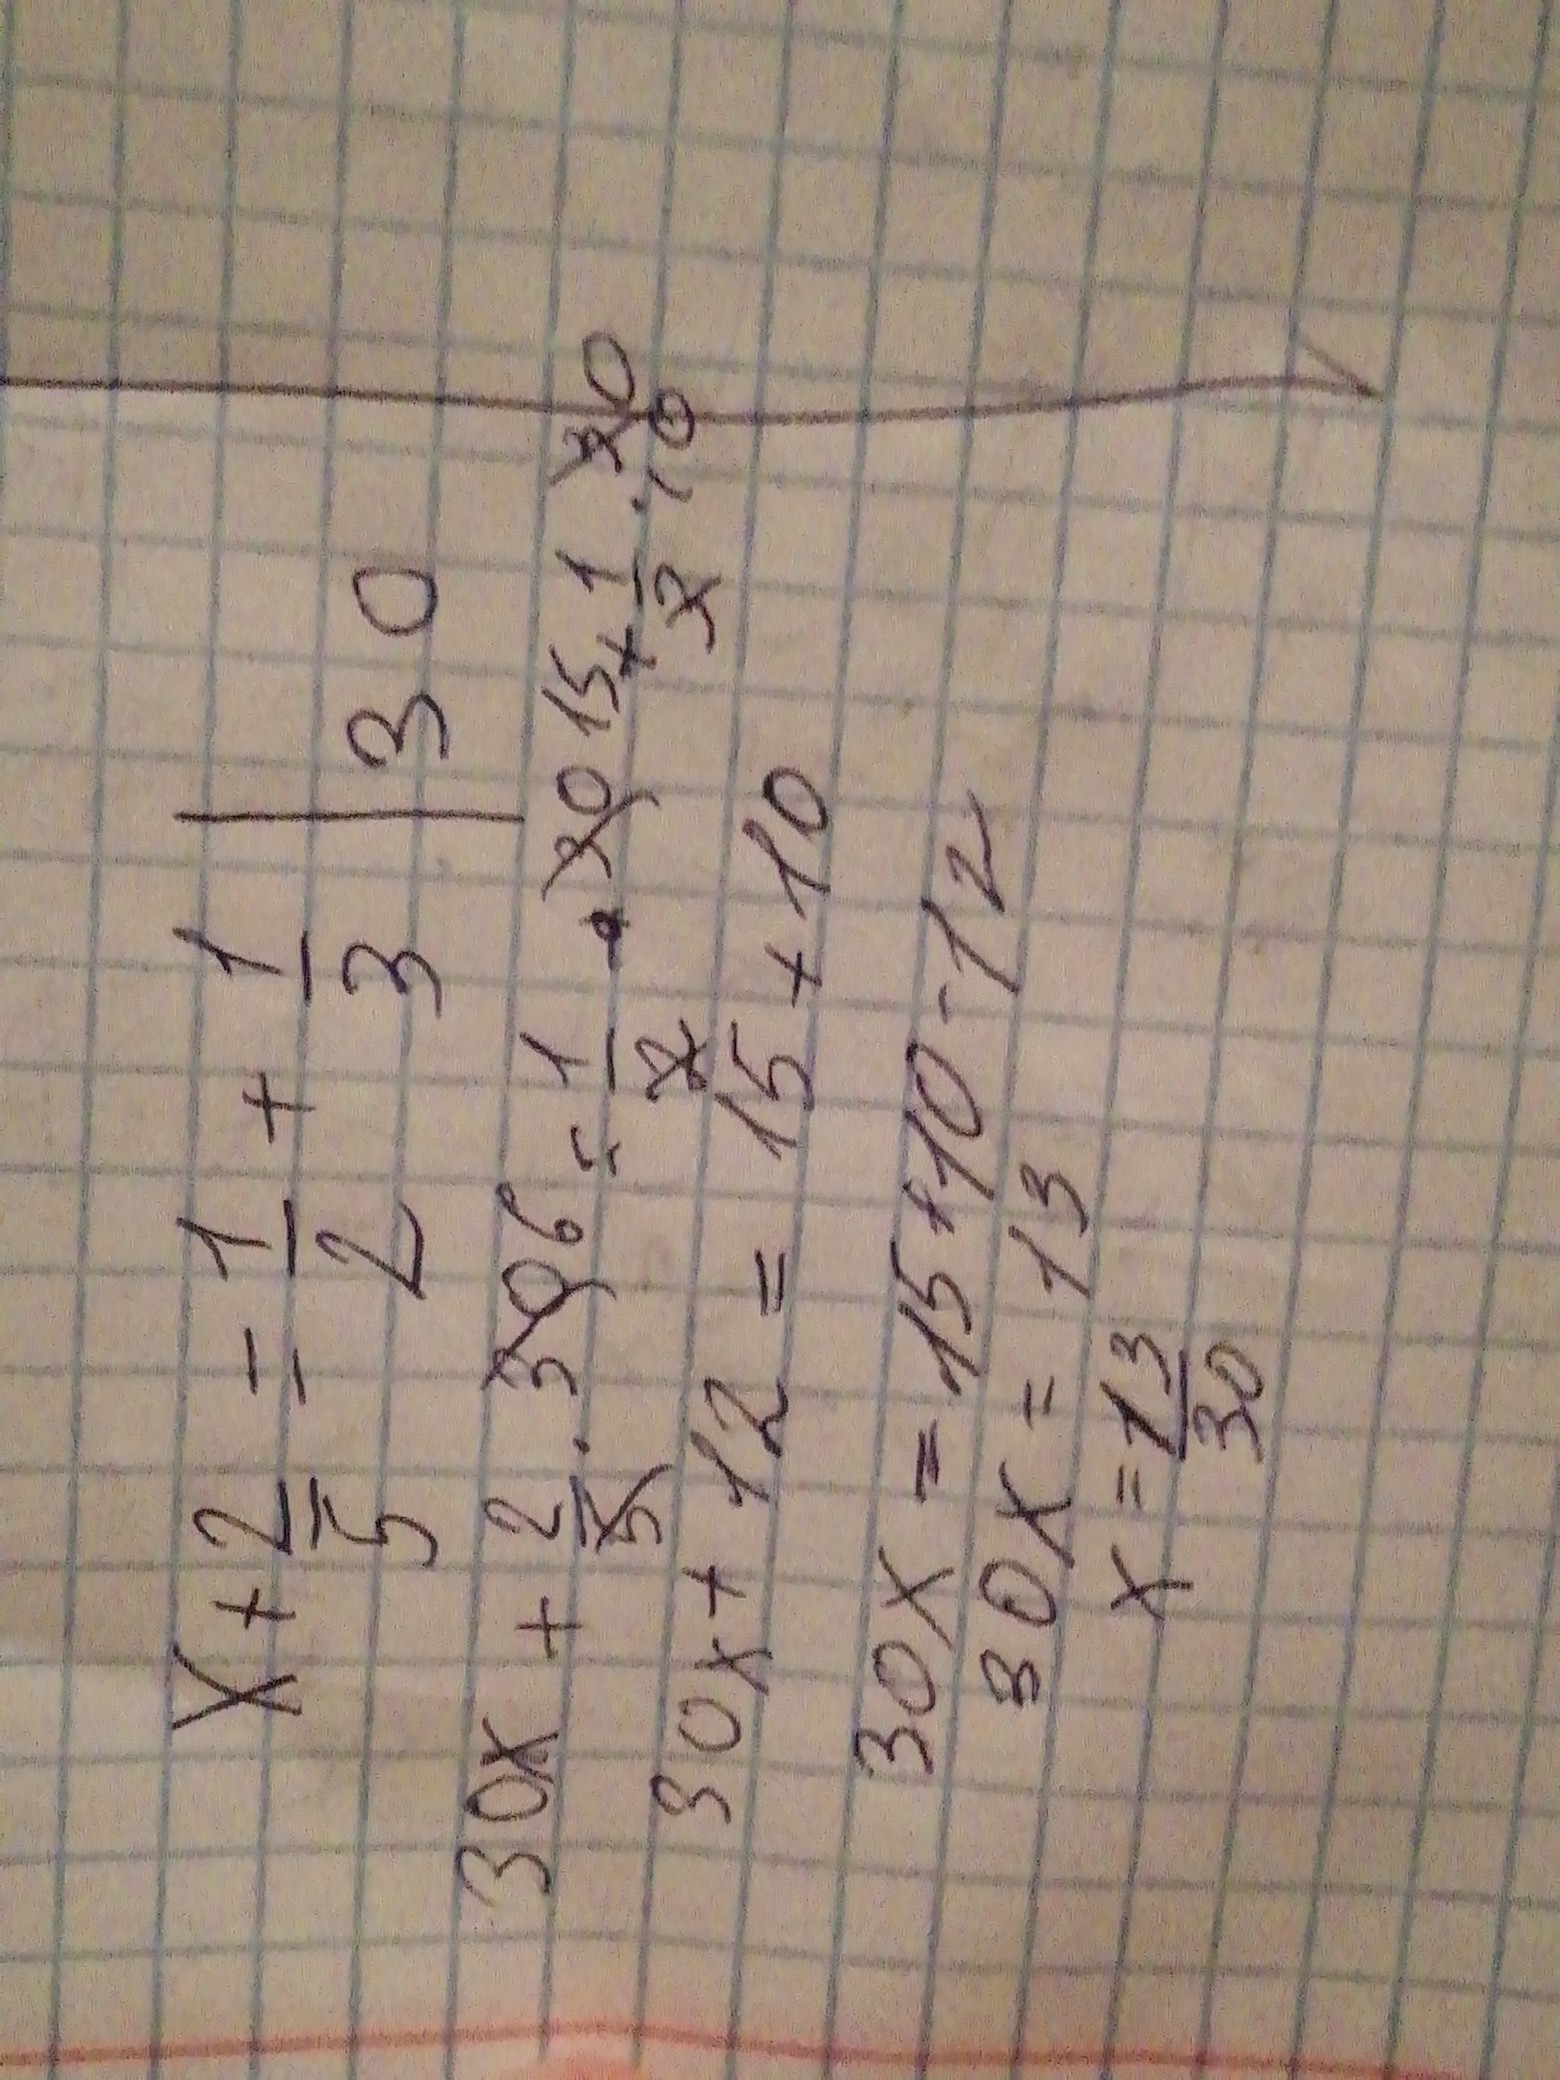 x + 2/5 = 1/2 + 1/3 | 30
30x + 2/5 · 30 6 = 1/2 · 30 15 + 1/3 · 30 10
30x + 12 = 15 + 10
30x = 15 + 10 - 12
30x = 13
x = 13/30